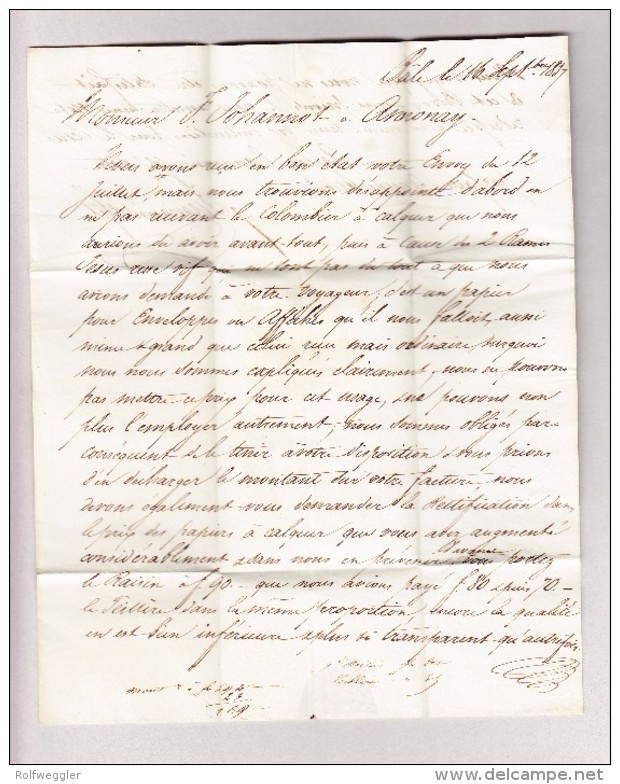 Bâle le 16 Septbre 1837
Monsieur F. Johannot à Annonay.
Nous avons reçu en bon état votre Envoy du 12
Juillet, mais nous trouvions désappointé d'abord en
n'pas recevant le Colombier à calquer que nous
aurions du avoir avant-tout, puis à cause des 2 Rames
Jesus rose vif que ne sont pas du tout à que nous
avions demandé à votre Voyageur, c'est un papier
pour Enveloppes ou Affiches qu'il nous falloit, aussi
même grand que celui reçu mais ordinaire, surquoi
nous nous sommes expliqués clairement, nous ne pouvons
pas mettre ce prix pour cet usage, & ne pouvons non
plus l'employer autrement; nous sommes obligés par
conséquent de le tenir à votre disposition & vous prions
d'en décharger le montant sur votre facture. nous
devons également vous demander la Rectification dans
le prix des papiers à calquer que vous avez augmenté
considérablement & dans nous en prévenir vous portez
le Raisin à f. 90.- que nous avions payé f. 80 & puis 70.-
le Tellière dans la même proportion, encore la qualité
en est d'un inférieure & plus si transparent qu'autrefois.
Rolfweggler
www.delcampe.net